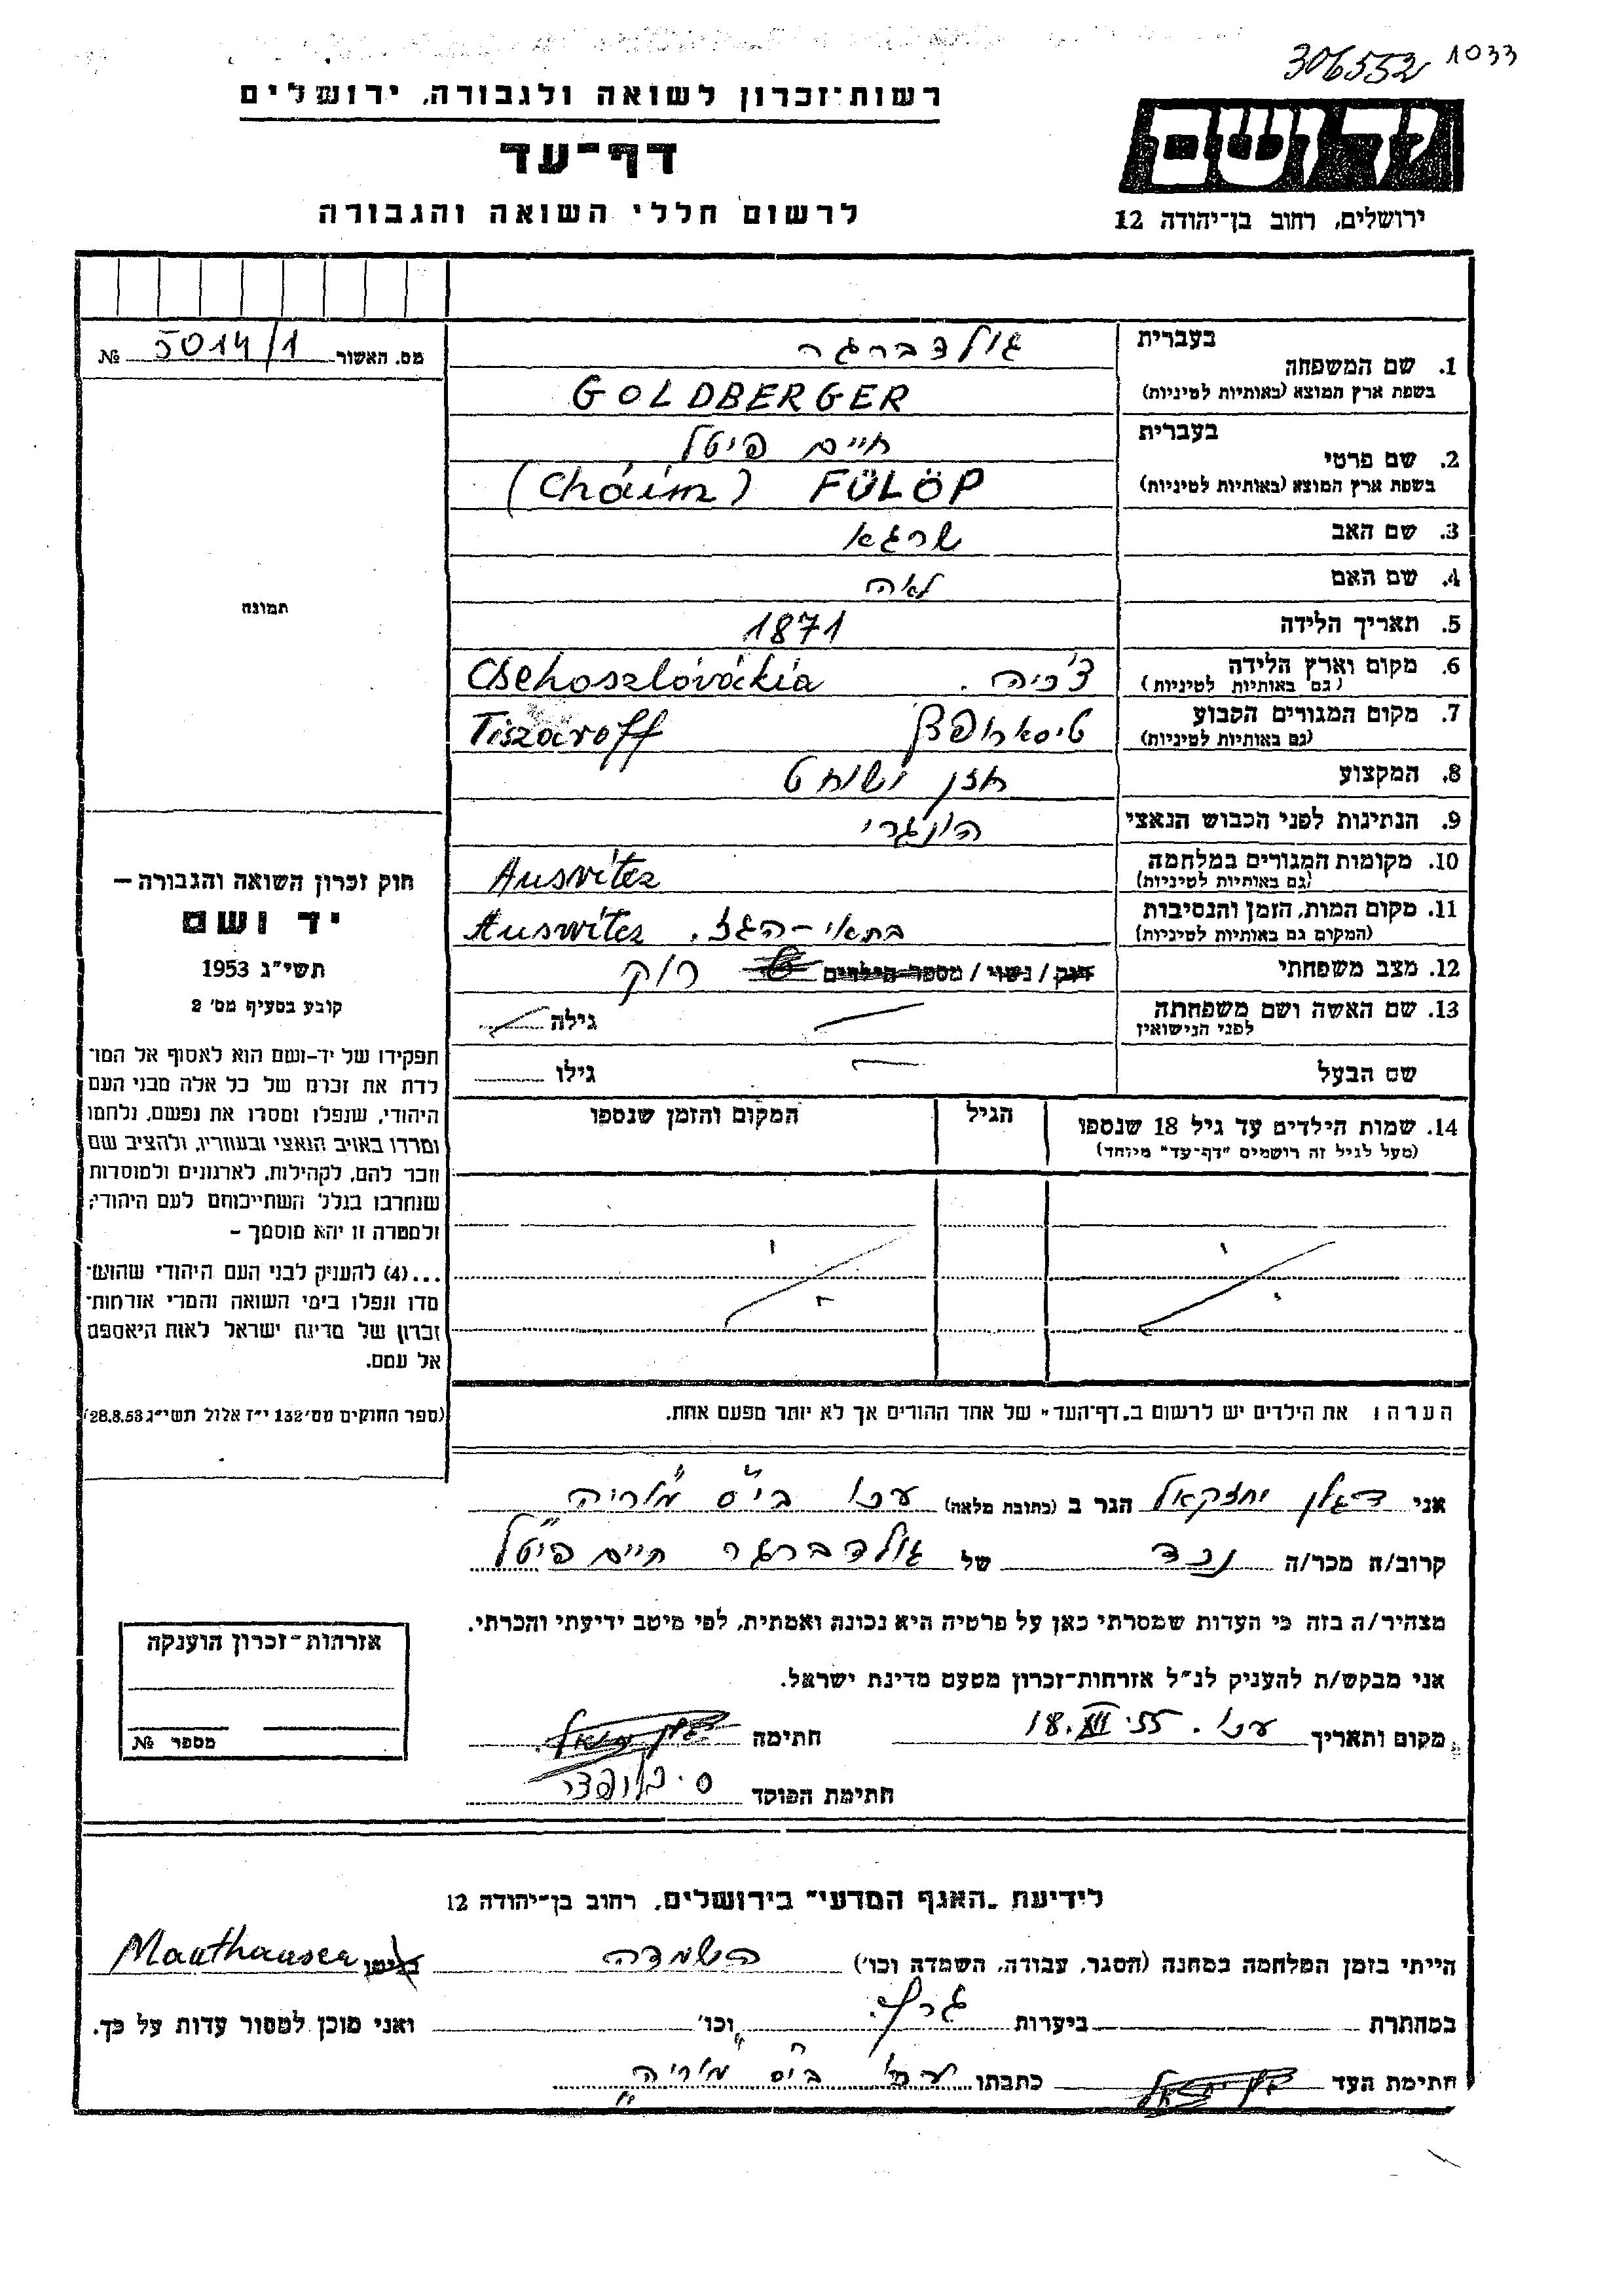 306552 1033
רשות-זכרון לשואה ולגבורה, ירושלים
דף-עד
לרשום חללי השואה והגבורה
יד ושם
ירושלים, רחוב בן-יהודה 12
מס. האשור 5014/1 №
תמונה
בעברית גולדברגר
1. שם המשפחה
בשפת ארץ המוצא (באותיות לטיניות) GOLDBERGER
בעברית חיים פיטל
2. שם פרטי
בשפת ארץ המוצא (באותיות לטיניות) (Cháim) FÜLÖP
3. שם האב שרגא
4. שם האם לאה
5. תאריך הלידה 1871
6. מקום וארץ הלידה צ'כיה. Csehoszlóvákia
(גם באותיות לטיניות)
7. מקום המגורים הקבוע Tiszároff
(גם באותיות לטיניות)
8. המקצוע חזן ושוחט
9. הנתינות לפני הכבוש הנאצי הונגרי
10. מקומות המגורים במלחמה Ausvitcz
(גם באותיות לטיניות)
11. מקום המות, הזמן והנסיבות בתאי-הגז. Auswitcz
(המקום גם באותיות לטיניות)
12. מצב משפחתי רווק / נשוי / מספר הילדים רוק
13. שם האשה ושם משפחתה גילה
לפני הנישואין
שם הבעל גילו
14. שמות הילדים עד גיל 18 שנספו הגיל המקום והזמן שנספו
(מעל לגיל זה רושמים "דף-עד" מיוחד)
הערה: את הילדים יש לרשום ב"דף-העד" של אחד ההורים אך לא יותר מפעם אחת.
חוק זכרון השואה והגבורה –
יד ושם
תשי"ג 1953
קובע בסעיף מס' 2
תפקידו של יד-ושם הוא לאסוף אל המו־
לדת את זכרם של כל אלה מבני העם
היהודי, שנפלו ומסרו את נפשם, נלחמו
ומרדו באויב הנאצי ובעוזריו, ולהציב שם
וזכר להם, לקהילות, לארגונים ולמוסדות
שנחרבו בגלל השתייכותם לעם היהודי;
ולמטרה זו יהא מוסמך –
...(4) להעניק לבני העם היהודי שהוש־
מדו ונפלו בימי השואה והמרי אזרחות־
זכרון של מדינת ישראל לאות היאספם
אל עמם.
(ספר החוקים מס' 132 י"ז אלול תשי"ג 28.8.53)
אני דגלן יחזקאל הגר ב (כתובת מלאה) עכו בי"ס "מוריה"
קרוב/ה מכר/ה נכד של גולדברגר חיים פיטל
מצהיר/ה בזה כי העדות שמסרתי כאן על פרטיה היא נכונה ואמתית, לפי מיטב ידיעתי והכרתי.
אני מבקש/ת להעניק לנ"ל אזרחות-זכרון מטעם מדינת ישראל.
מקום ותאריך עכו. 18.XII.55 חתימה
חתימת הפוקד
אזרחות-זכרון הוענקה
מספר №
לידיעת "האגף המדעי" בירושלים, רחוב בן-יהודה 12
הייתי בזמן המלחמה במחנה (הסגר, עבודה, השמדה וכו') השמדה Mauthausen
במחתרת ביערות וכו' ואני מוכן למסור עדות על כך.
חתימת העד כתבתו עכו בי"ס "מוריה"